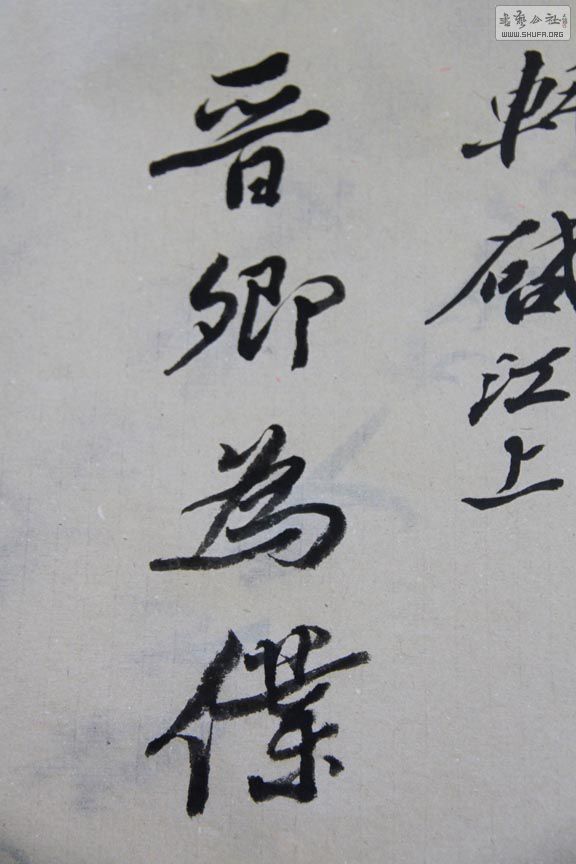 書藝公社
WWW.SHUFA.ORG
江上
晉卿為僕